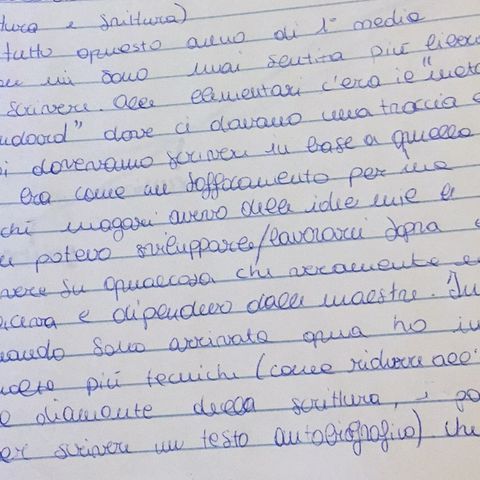 tura e scrittura)
tutto questo anno di 1ª media
mi sono mai sentita più libera
scrivere. Alle elementari c'era il "met
dove ci davano una traccia e
i dovevamo scrivere in base a quella
era come un soffocamento per me
chi magari avevo delle idee mie e
potevo sviluppare/lavorarci sopra e
vere su qualcosa che veramente
aceva e dipendevo dalle maestre. In
uando sono arrivata qua ho
più tecniche (come ridurre all'
o diamante della scrittura, i
er scrivere un testo autobiografico) che